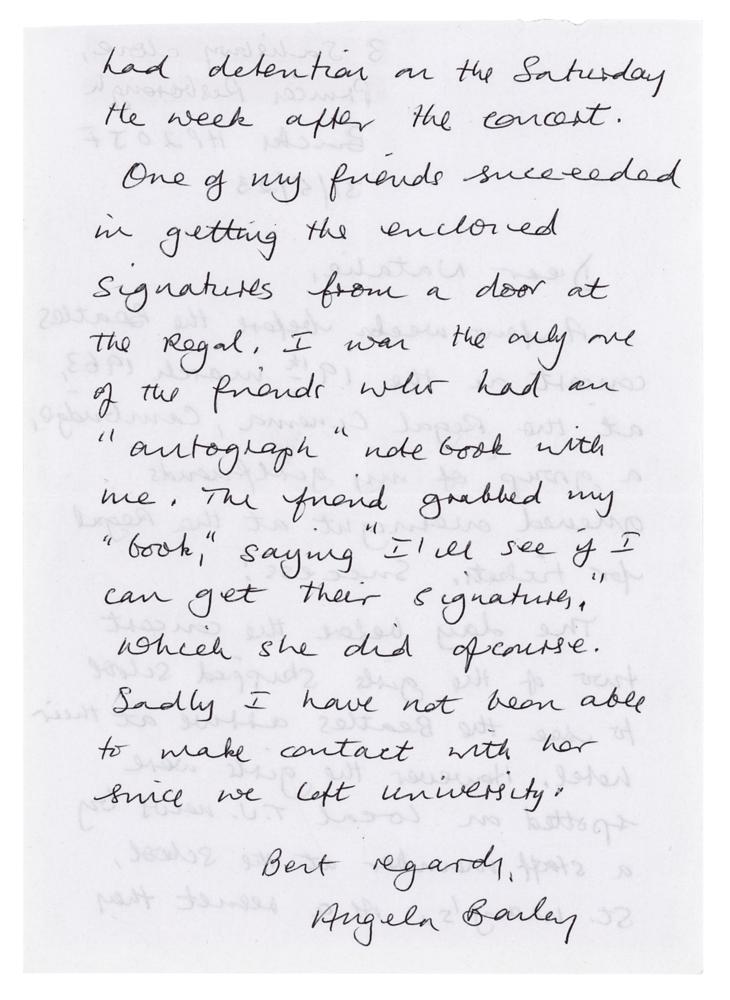 had detention on the Saturday
the week after the concert.
One of my friends succeeded
in getting the enclosed
signatures from a door at
the Regal. I was the only one
of the friends who had an
"autograph" note book with
me. The friend grabbed my
"book," saying "I'll see if I
can get their signatures,"
which she did ofcourse.
Sadly I have not been able
to make contact with her
since we left university.
Best regards,
Angela Barley